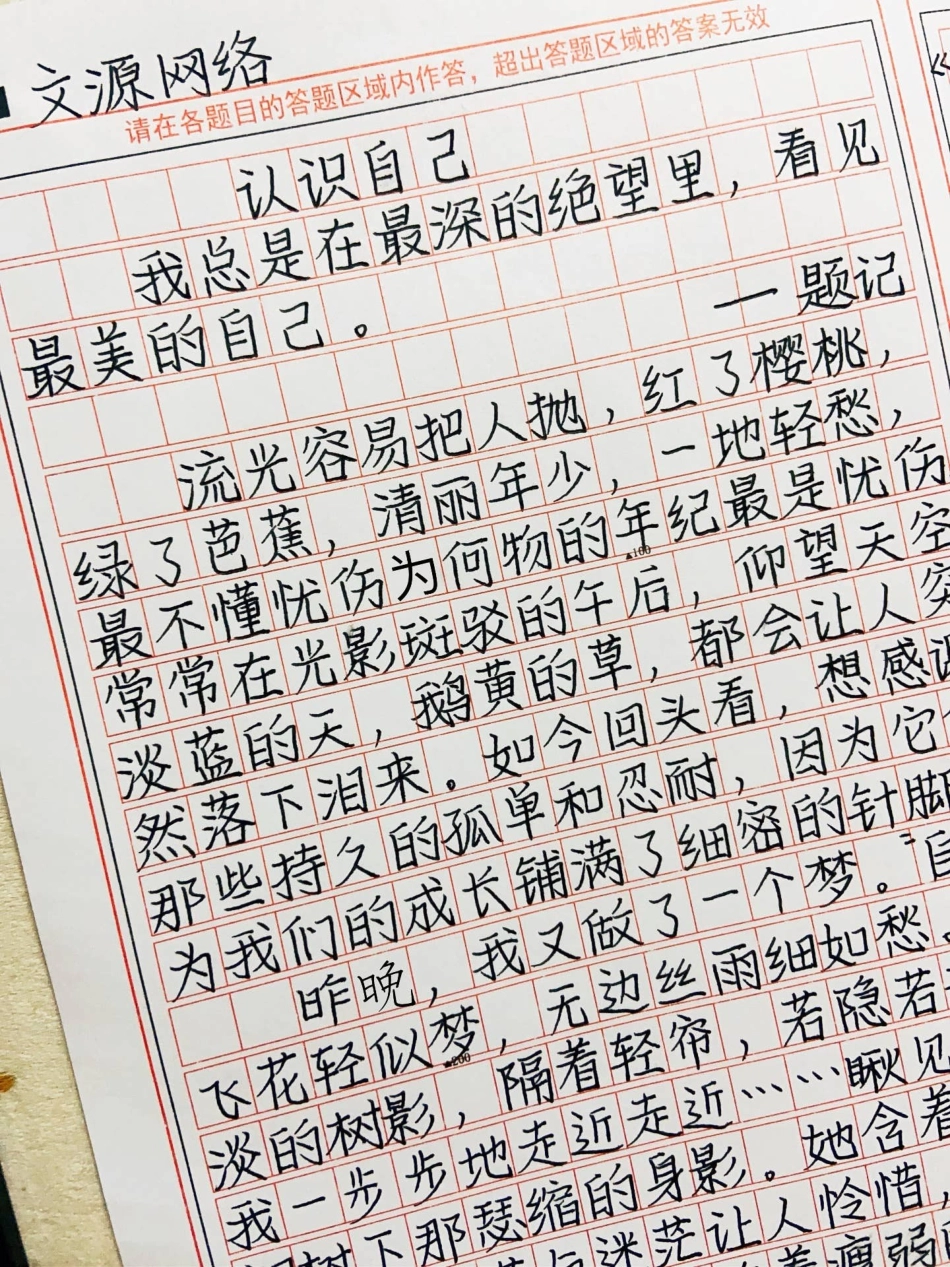 文源网络
请在各题目的答题区域内作答，超出答题区域的答案无效
认识自己
我总是在最深的绝望里，看见
最美的自己。 —题记
流光容易把人抛，红了樱桃，
绿了芭蕉，清丽年少，一地轻愁，
最不懂忧伤为何物的年纪最是忧伤
▲100
常常在光影斑驳的午后，仰望天空
淡蓝的天，鹅黄的草，都会让人突
然落下泪来。如今回头看，想感谢
那些持久的孤单和忍耐，因为它
为我们的成长铺满了细密的针脚
昨晚，我又做了一个梦。自
飞花轻似梦，无边丝雨细如愁。
▲200
淡的树影，隔着轻帘，若隐若
我一步步地走近走近……瞅见
树下那瑟缩的身影。她含着
与迷茫让人怜惜，
着瘦弱